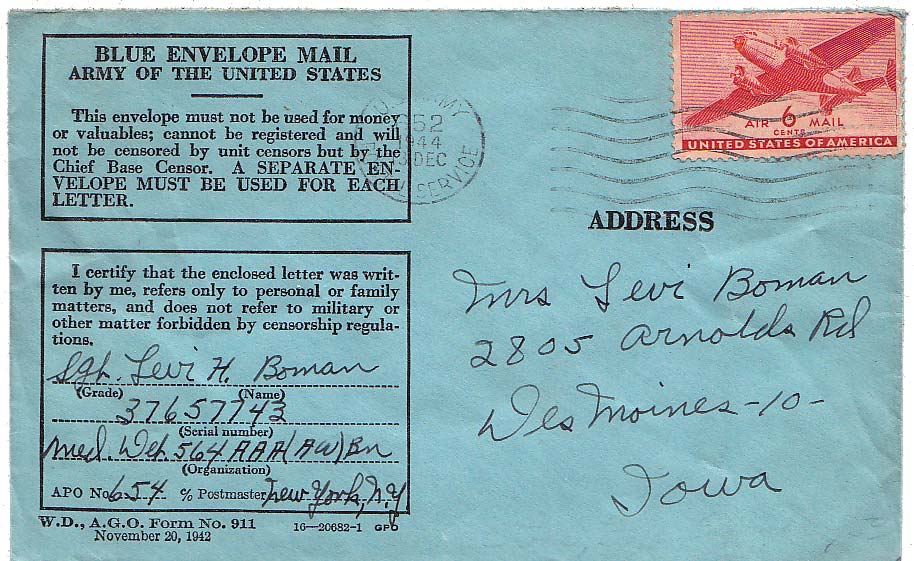 BLUE ENVELOPE MAIL
ARMY OF THE UNITED STATES
This envelope must not be used for money
or valuables; cannot be registered and will
not be censored by unit censors but by the
Chief Base Censor. A SEPARATE EN-
VELOPE MUST BE USED FOR EACH
LETTER.
52
1944
DEC
SERVICE
AIR 6 MAIL
CENTS
UNITED STATES OF AMERICA
I certify that the enclosed letter was writ-
ten by me, refers only to personal or family
matters, and does not refer to military or
other matter forbidden by censorship regula-
tions.
Sgt. Levi H. Boman
(Grade) (Name)
37657743
(Serial number)
Med. Det. 564 AAA (AW) Bn
(Organization)
APO No. 654 % Postmaster New York, N.Y
W.D., A.G.O. Form No. 911 16—20682-1 GPO
November 20, 1942
ADDRESS
Mrs Levi Boman
2805 Arnolds Rd
Des Moines -10-
Iowa